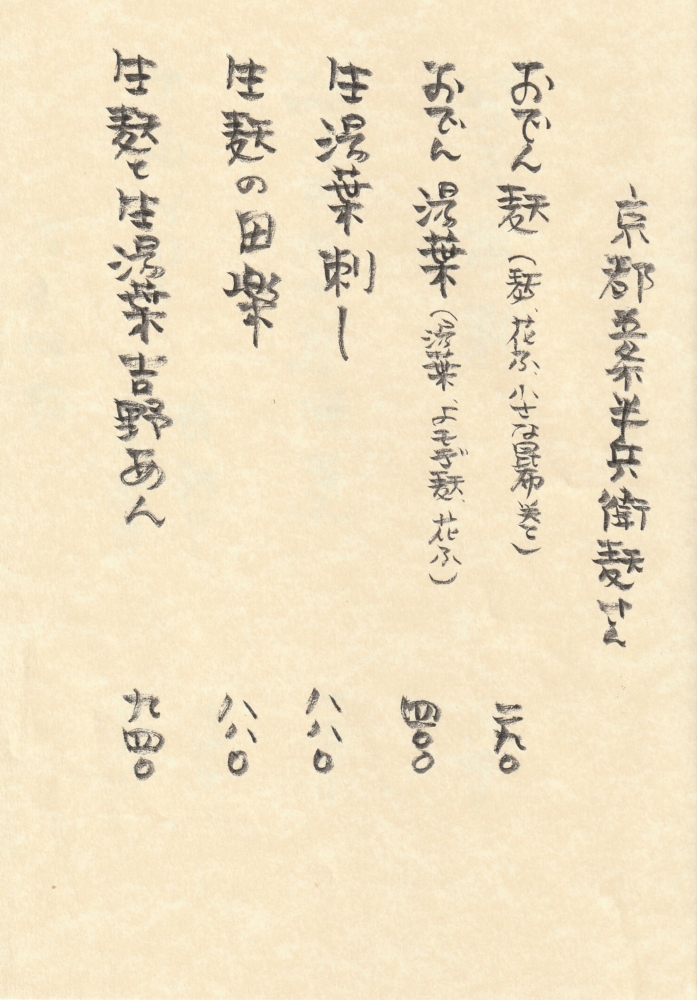 京都五条半兵衛麸さん
おでん 麸（麸、花ふ、小さな昆布巻き）
二九〇
おでん 湯葉（湯葉、よもぎ麸、花ふ）
四〇〇
生湯葉刺し
八八〇
生麸の田楽
八八〇
生麸と生湯葉吉野あん
九四〇